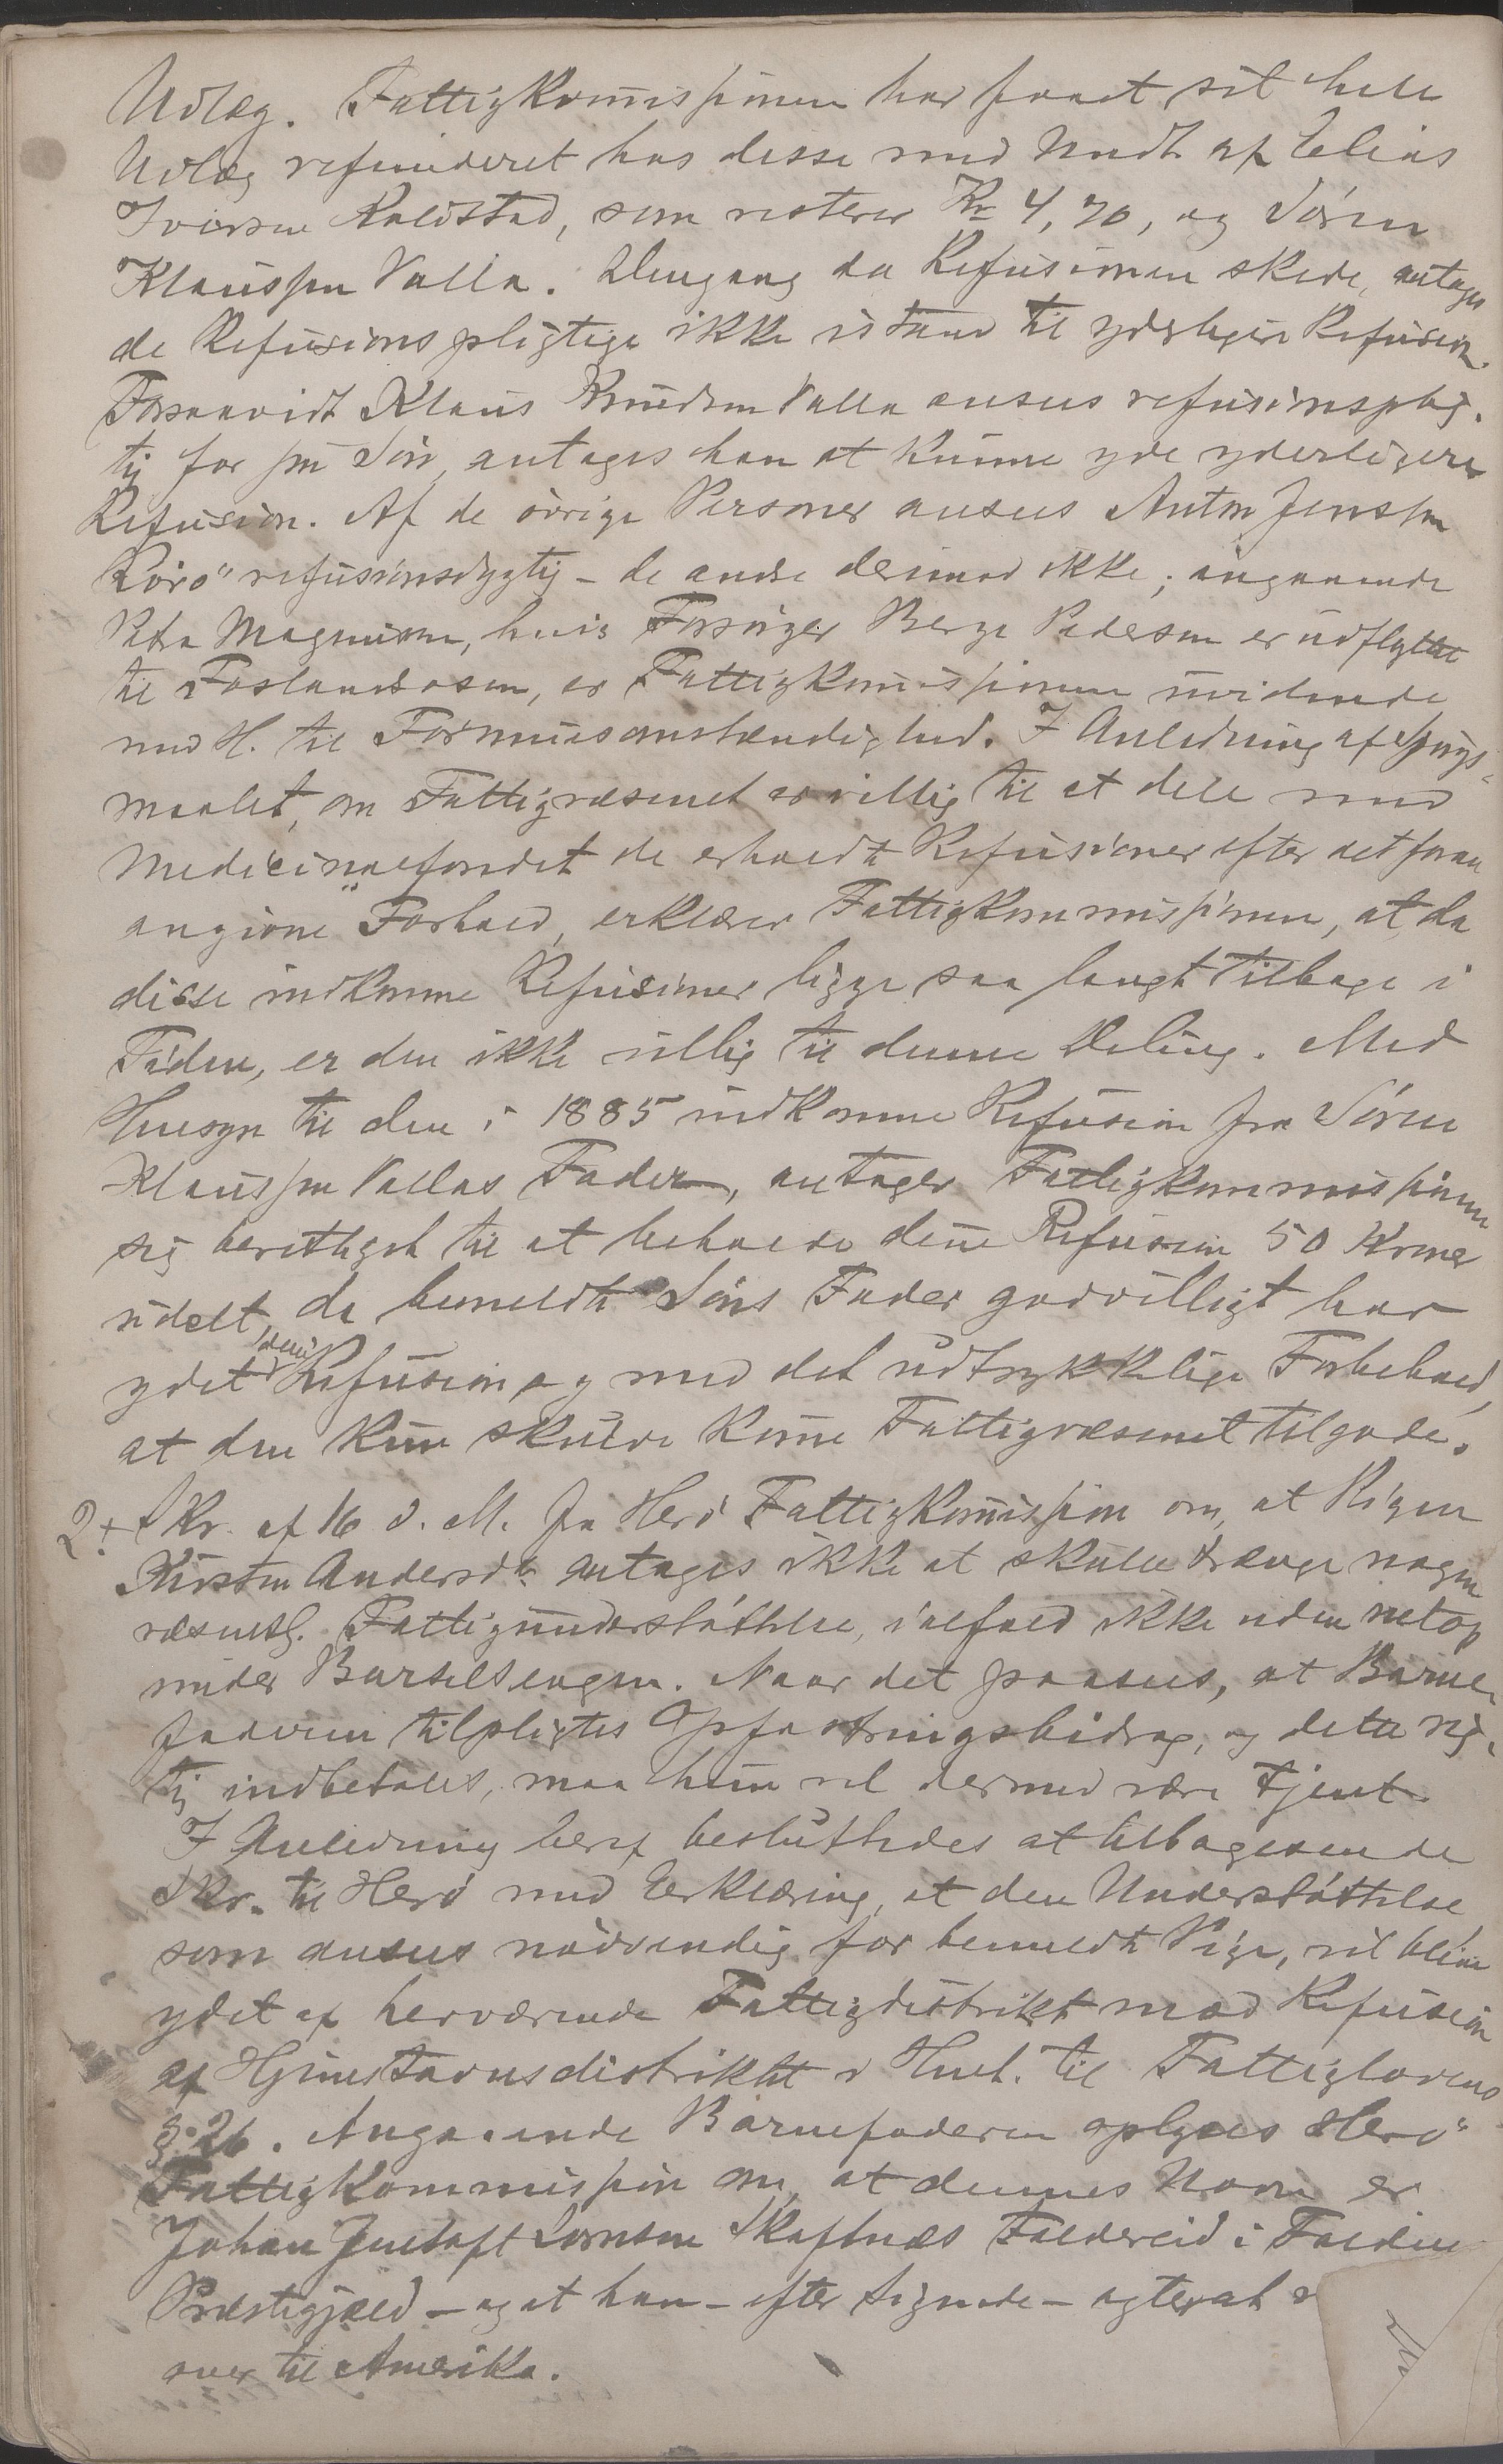 Udlæg. Fattigkommissionen har faaet sit hele
Udlæg refunderet hos disse med Undt. af Elias
Iversen Kaldstad, som resterer Kr 4,70, og Sören
Klaussen Valla. Dengang da Refusionen skede, antages
de Refusionspligtige ikke istand til yderligere Refusion.
Forsaavidt Klaus Knudsen Valla ansees refusionsplig-
tig for sin Sön, antages han at kunne yde yderligere
Refusion. Af de övrige Personer ansees Anton Jenssen
Rörö refusionsdygtig - de andre derimod ikke; angaaende
Petra Magnusen, hvis Forsörger Berge Pedersen er udflyttet
til Foslandsosen, er Fattigkommissionen uvidende
med H. til Formuesomstændighed. I Anledning af Spörgs-
maalet, om Fattigvæsenet er villig til at dele med
Medicinalfondet de erholdte Refusioner efter det foran
angivne Forhold, erklærer Fattigkommissionen, at da
disse indkomne Refusioner ligge saa langt tilbage i
Tiden, er den ikke villig til denne Deling. Med
Hensyn til den i 1885 indkomne Refusion fra Sören
Klaussen Vallas Fader, antager Fattigkommissionen
sig berettiget til at beholde denne Refusion 50 Kroner
udelt, da bemeldte Söns Fader godvilligt har
ydet denne Refusion og med det udtrykkelige Forbehold,
at den kun skulde komme Fattigvæsenet tilgode.
2. Skr. af 16 d. M. fra Herö Fattigkommission om, at Pigen
Kirsten Andersdtr. antages ikke at skulle trænge nogen
væsentl. Fattigunderstöttelse, ialfald ikke uden netop
under Barselsengen. Naar det paasees, at Barne-
faderen tilpligtes Opfostringsbidrag, og dette rig-
tig indbetales, maa hun vel dermed være tjent.
I Anledning heraf besluttedes at tilbagesende
Skr. til Herö med Erklæring, at den Understöttelse
som ansees nödvendig for bemeldte Pige, vil blive
ydet af herværende Fattigdistrikt mod Refusion
af Hjemstavnsdistriktet i Henh. til Fattiglovens
§ 26. Angaaende Barnefaderen oplyses Herö
Fattigkommission om, at dennes Navn er
Johan Gustaft Lorntsen Skafnæs Foldereid i Folden
Præstegjæld - og at han - efter Sigende - agter at
over til Amerika.